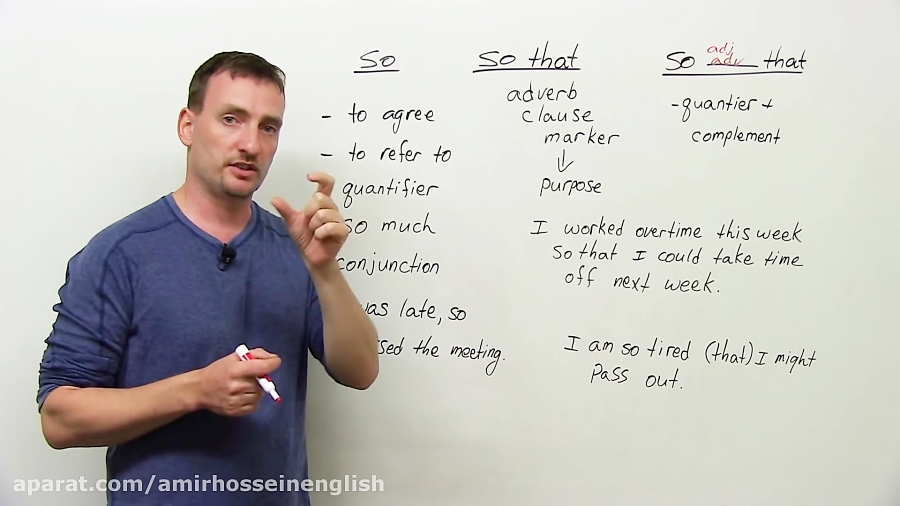 so
- to agree
- to refer to
quantifier
so much
conjunction
was late, so
ssed the meeting.
so that
adverb
clause
marker
↓
purpose
I worked overtime this week
so that I could take time
off next week.
so adj adv ___ that
- quantier +
complement
I am so tired (that) I might
pass out.
aparat.com/amirhosseinenglish